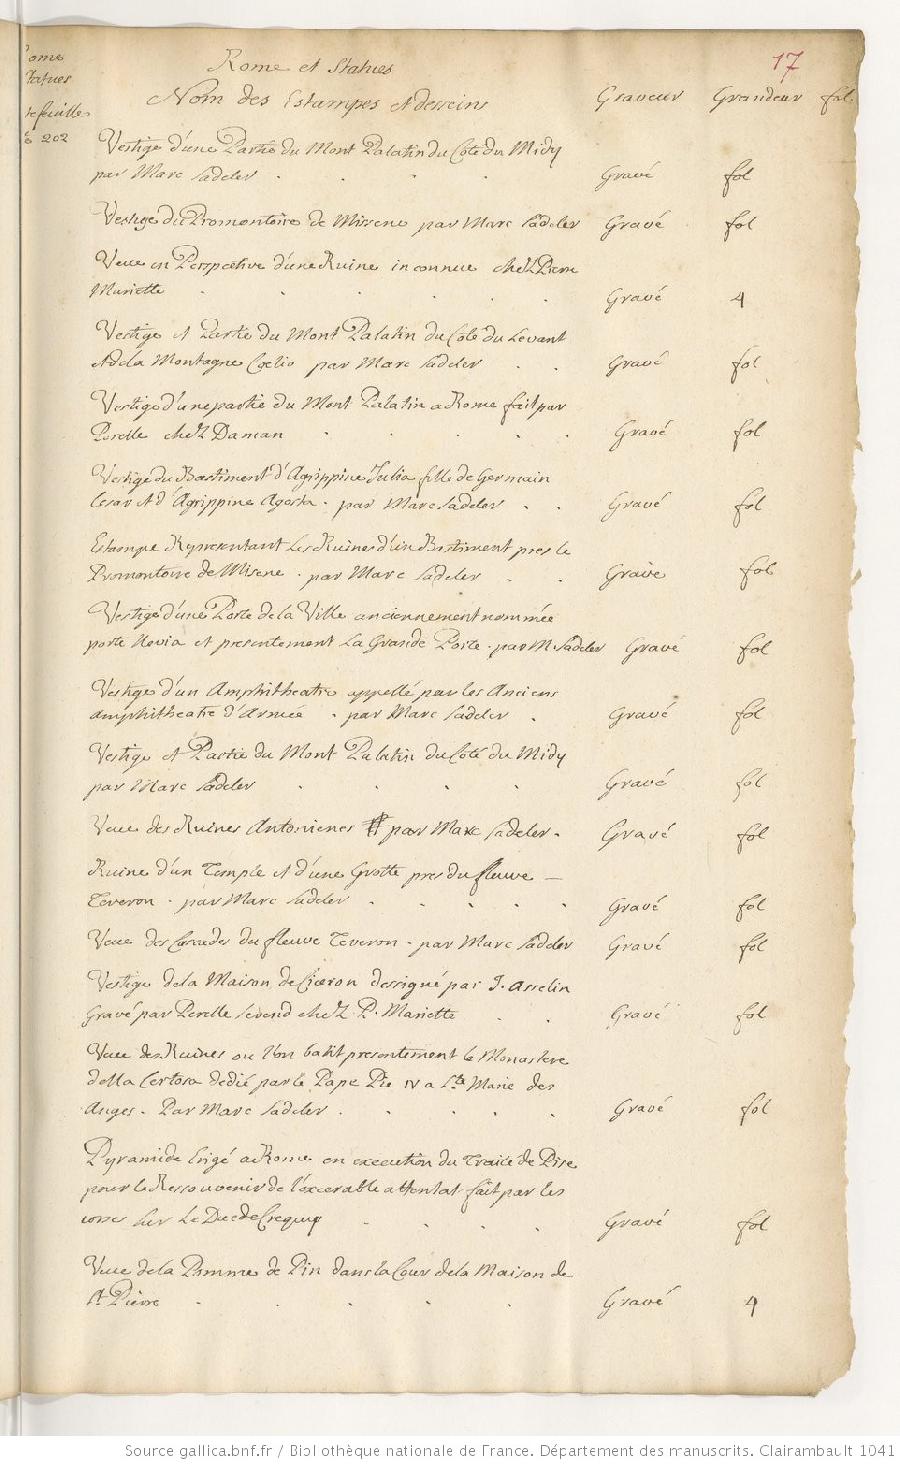 17
Rome et Statues
ome
tatues
Nom des Estampes et desseins Graveur Grandeur fol.
tefeuilles
202
Vestige d'une Partie du Mont Palatin du Coté du Midy
par Marc Sadeler . . . Gravé fol
Vestige du Promontoire de Missene par Marc Sadeler Gravé fol
Veue en Perspective d'une Ruine inconnue chez Pierre
Mariette . . . . . . Gravé 4
Vestige et Partie du Mont Palatin du Coté du Levant
et de la Montagne Coelio par Marc Sadeler . . Gravé fol
Vestige d'une partie du Mont Palatin a Rome fait par
Perelle chez Daman . . . . Gravé fol
Vestige du Bastiment d'Agrippine Julia fille de Germain
Cesar et d'Agrippine Agosta . par Marc Sadeler . . Gravé fol
Estampe Representant les Ruines d'un Bastiment pres le
Promontoire de Misene . par Marc Sadeler . . Gravée fol
Vestige d'une Porte de la Ville anciennement nommée
porte Nevia et presentement la Grande Porte . par M. Sadeler Gravé fol
Vestige d'un Amphitheatre appellé par les Anciens
amphitheatre d'Armée . par Marc Sadeler . Gravé fol
Vestige et Partie du Mont Palatin du Coté du Midy
par Marc Sadeler . . . . Gravé fol
Veue des Ruines Antonienes par Marc Sadeler . Gravé fol
Ruine d'un Temple et d'une Grotte pres du fleuve —
Teveron . par Marc Sadeler . . . . . Gravé fol
Veue des Cascades du fleuve Teveron . par Marc Sadeler Gravé fol
Vestige de la Maison de Ciceron dessigné par J. Asselin
Gravé par Perelle se vend chez P. Mariette . . Gravé fol
Veue des Ruines ou l'on batit presentement le Monastere
della Certosa dedié par le Pape Pie IV a Ste Marie des
Anges . Par Marc Sadeler . . . . . Gravé fol
Pyramide Erigé a Rome en execution du Traité de Pise
pour le Ressouvenir de l'execrable attentat fait par les
corses sur Le Duc de Crequy . . . . Gravé fol
Veue de la Pomme de Pin dans la Cour de la Maison de
St Pierre . . . . . Gravé 4
Source gallica.bnf.fr / Bibliothèque nationale de France. Département des manuscrits. Clairambault 1041